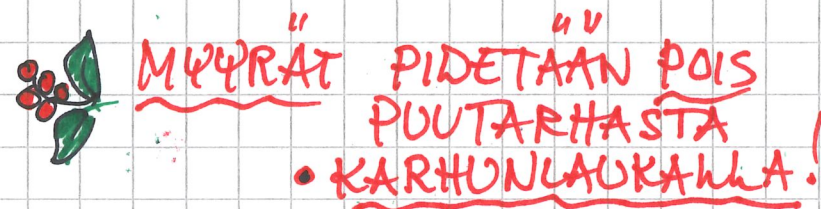 MYYRÄT PIDETÄÄN POIS
PUUTARHASTA
• KARHUNLAUKALLA!